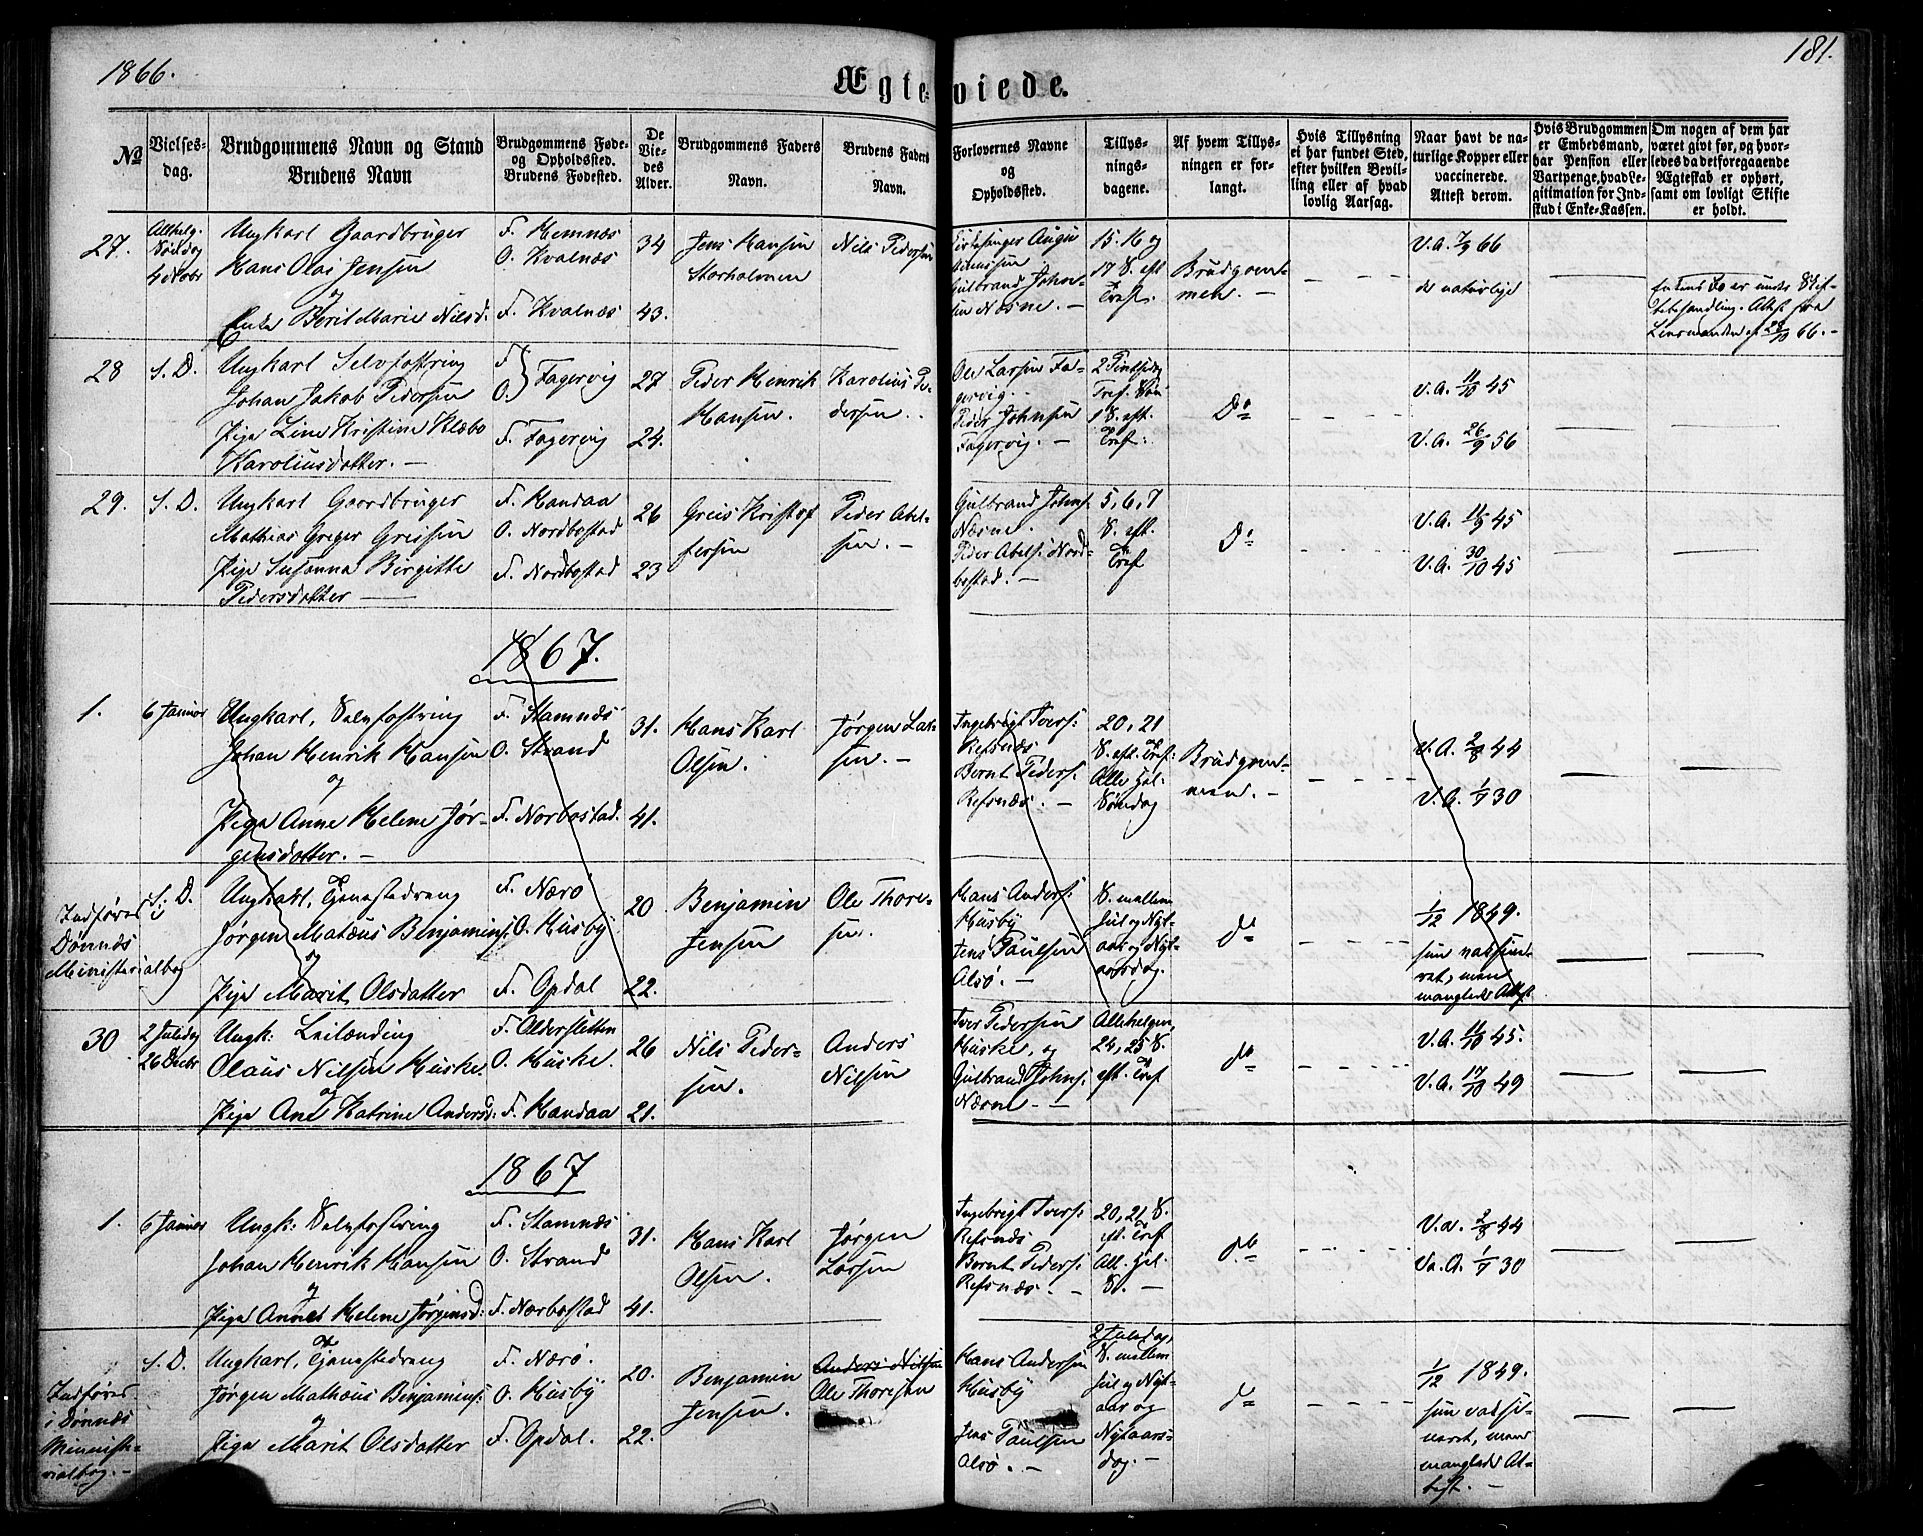 1866.
181.
Ægteviede.
No
Vielses-
dag.
Brudgommens Navn og Stand
Brudens Navn
Brudgommens Føde-
og Opholdssted.
Brudens Fødested.
De
Vie-
des
Alder.
Brudgommens Faders
Navn.
Brudens Faders
Navn.
Forlovernes Navne
og
Opholdssted.
Tillys-
nings-
dagene.
Af hvem Tillys-
ningen er for-
langt.
Hvis Tillysning
ei har fundet Sted,
efter hvilken Bevil-
ling eller af hvad
lovlig Aarsag.
Naar havt de na-
turlige Kopper eller
vaccinerede.
Attest derom.
Hvis Brudgommen
er Embedsmand,
har Pension eller
Vartpenge, hvad Le-
gitimation for Ind-
skud i Enke-Kassen.
Om nogen af dem har
været givt før, og hvor-
ledes da det foregaaende
Ægteskab er ophørt,
samt om lovligt Skifte
er holdt.
27.
Allhelg.
Søndag
4 Novbr
Ungkarl Gaardbruger
Hans Olai Jensen
og
Enke Berit Marie Nilsd.
F. Hemnæs
O. Kvalnæs
F. Kvalnæs
34
43.
Jens Hansen
Storholmen
Nils Pedersen
Gulbrand John-
sen Næsne. —
15. 16 og
17 S. eft
Tref.
Brudgom-
men. —
V.A. 7/9 66
de naturlige
Enkens Bo er under Skif-
tebehandling. Attest fra
Lensmanden af 28/10 66. —
28
S. D.
Ungkarl Selvfostring
Johan Jakob Pedersen
Pige Line Kristine Klæbo
Karoliusdatter. —
F.
O. } Fagervig
F. Fagervig
27
24.
Peder Henrik
Hansen.
Karolius Pe-
dersen.
Ole Larsen Fa-
gervig.
Peder Johnsen
Fagervig. —
2 Pintsedag
Tref. Søn
1 S. eft.
Tref.
Do
V.A. 11/10 45
V.A. 26/9 56
29.
S. D.
Ungkarl Gaardbruger
Mathias Greger Greisen
Pige Susanna Birgitte
Pedersdatter —
F. Handaa
O. Nordbostad
F. Nordbostad
26
23
Greis Kristof
fersen
Peder Abel-
sen. —
Gulbrand Johns.
Næsne.
Peder Abels. Nord-
bostad. —
5, 6, 7
S. eft.
Tref
Do
V.A. 11/9 45
V.A. 30/10 45
1867.
1.
6 Januar
Ungkarl, Selvfostring
Johan Henrik Hansen
og
Pige Anne Helene Jør-
gensdatter. —
F. Stamnæs
O. Strand
F. Norbostad.
31.
41.
Hans Karl
Olsen.
Jørgen Lar-
sen. —
Ingebrigt Ivers.
Refsnæs
Bernt Peders.
Refsnæs. —
20, 21
S. eft. Tref.
Alle Hel.
Søndag
Brudgom-
men. —
V.A. 2/8 44
V.A. 1/7 30
Indføres i
Dønnæs
Ministerialbog
S. D.
Ungkarl, Tjenestedreng
Jørgen Matæus Benjamins.
og
Pige Marit Olsdatter
F. Nærø
O. Husby
F. Opdal
20
22.
Benjamin
Jensen
Ole Thore-
sen.
Hans Anders.
Husby
Jens Paulsen
Alsø. —
S. mellem
Jul og Nyt-
aar og Nyt-
aarsdag.
do
1/12 1849.
mangleds Attest.
30
2 Juledag
26 Decbr
Ungk: Leilænding
Olaus Nilsen Huske.
og
Pige Ane Katrine Andersd:
F. Aldersletten
O. Huske.
F. Handaa
26
21.
Nils Peder-
sen.
Anders
Nilsen
Iver Pedersen
Huske, og
Gulbrand Johns.
Næsne — —
Allehelgen,
24, 25 S.
eft. Tref
do
V.A. 11/10 45.
V.A. 17/10 49
1867
1.
6 Januar
Ungk: Selvfostring
Johan Henrik Hansen
og
Pige Anne Helene Jørgensd:
F. Stamnæs
O. Strand
F. Norbostad
31.
41.
Hans Karl
Olsen.
Jørgen
Larsen
Ingebrigt Ivers:
Refsnæs
Bernt Peders:
Refsnæs. —
20, 21 S.
eft. Tref
All. Hel.
S. —
do
V.a. 2/8 44
Va.A. 1/7 30
Indføres
i Dønnæs
Ministe-
rialbog. —
S. D.
Ungkarl, Tjenestedreng
Jørgen Mathæus Benjamins:
og
Pige Marit Olsdatter
F. Nærø.
O. Husby
F. Opdal.
20.
22.
Benjamin
Jensen.
Anders Nilsen
Ole Thoresen
Hans Andersen
Husby
Jens Paulsen
Alsø. —
2 Juledag,
S. mellem
Jul og Nyt-
aar og
Nytaars-
dag. —
do
1/12 1849.
mangleds At-
test. —